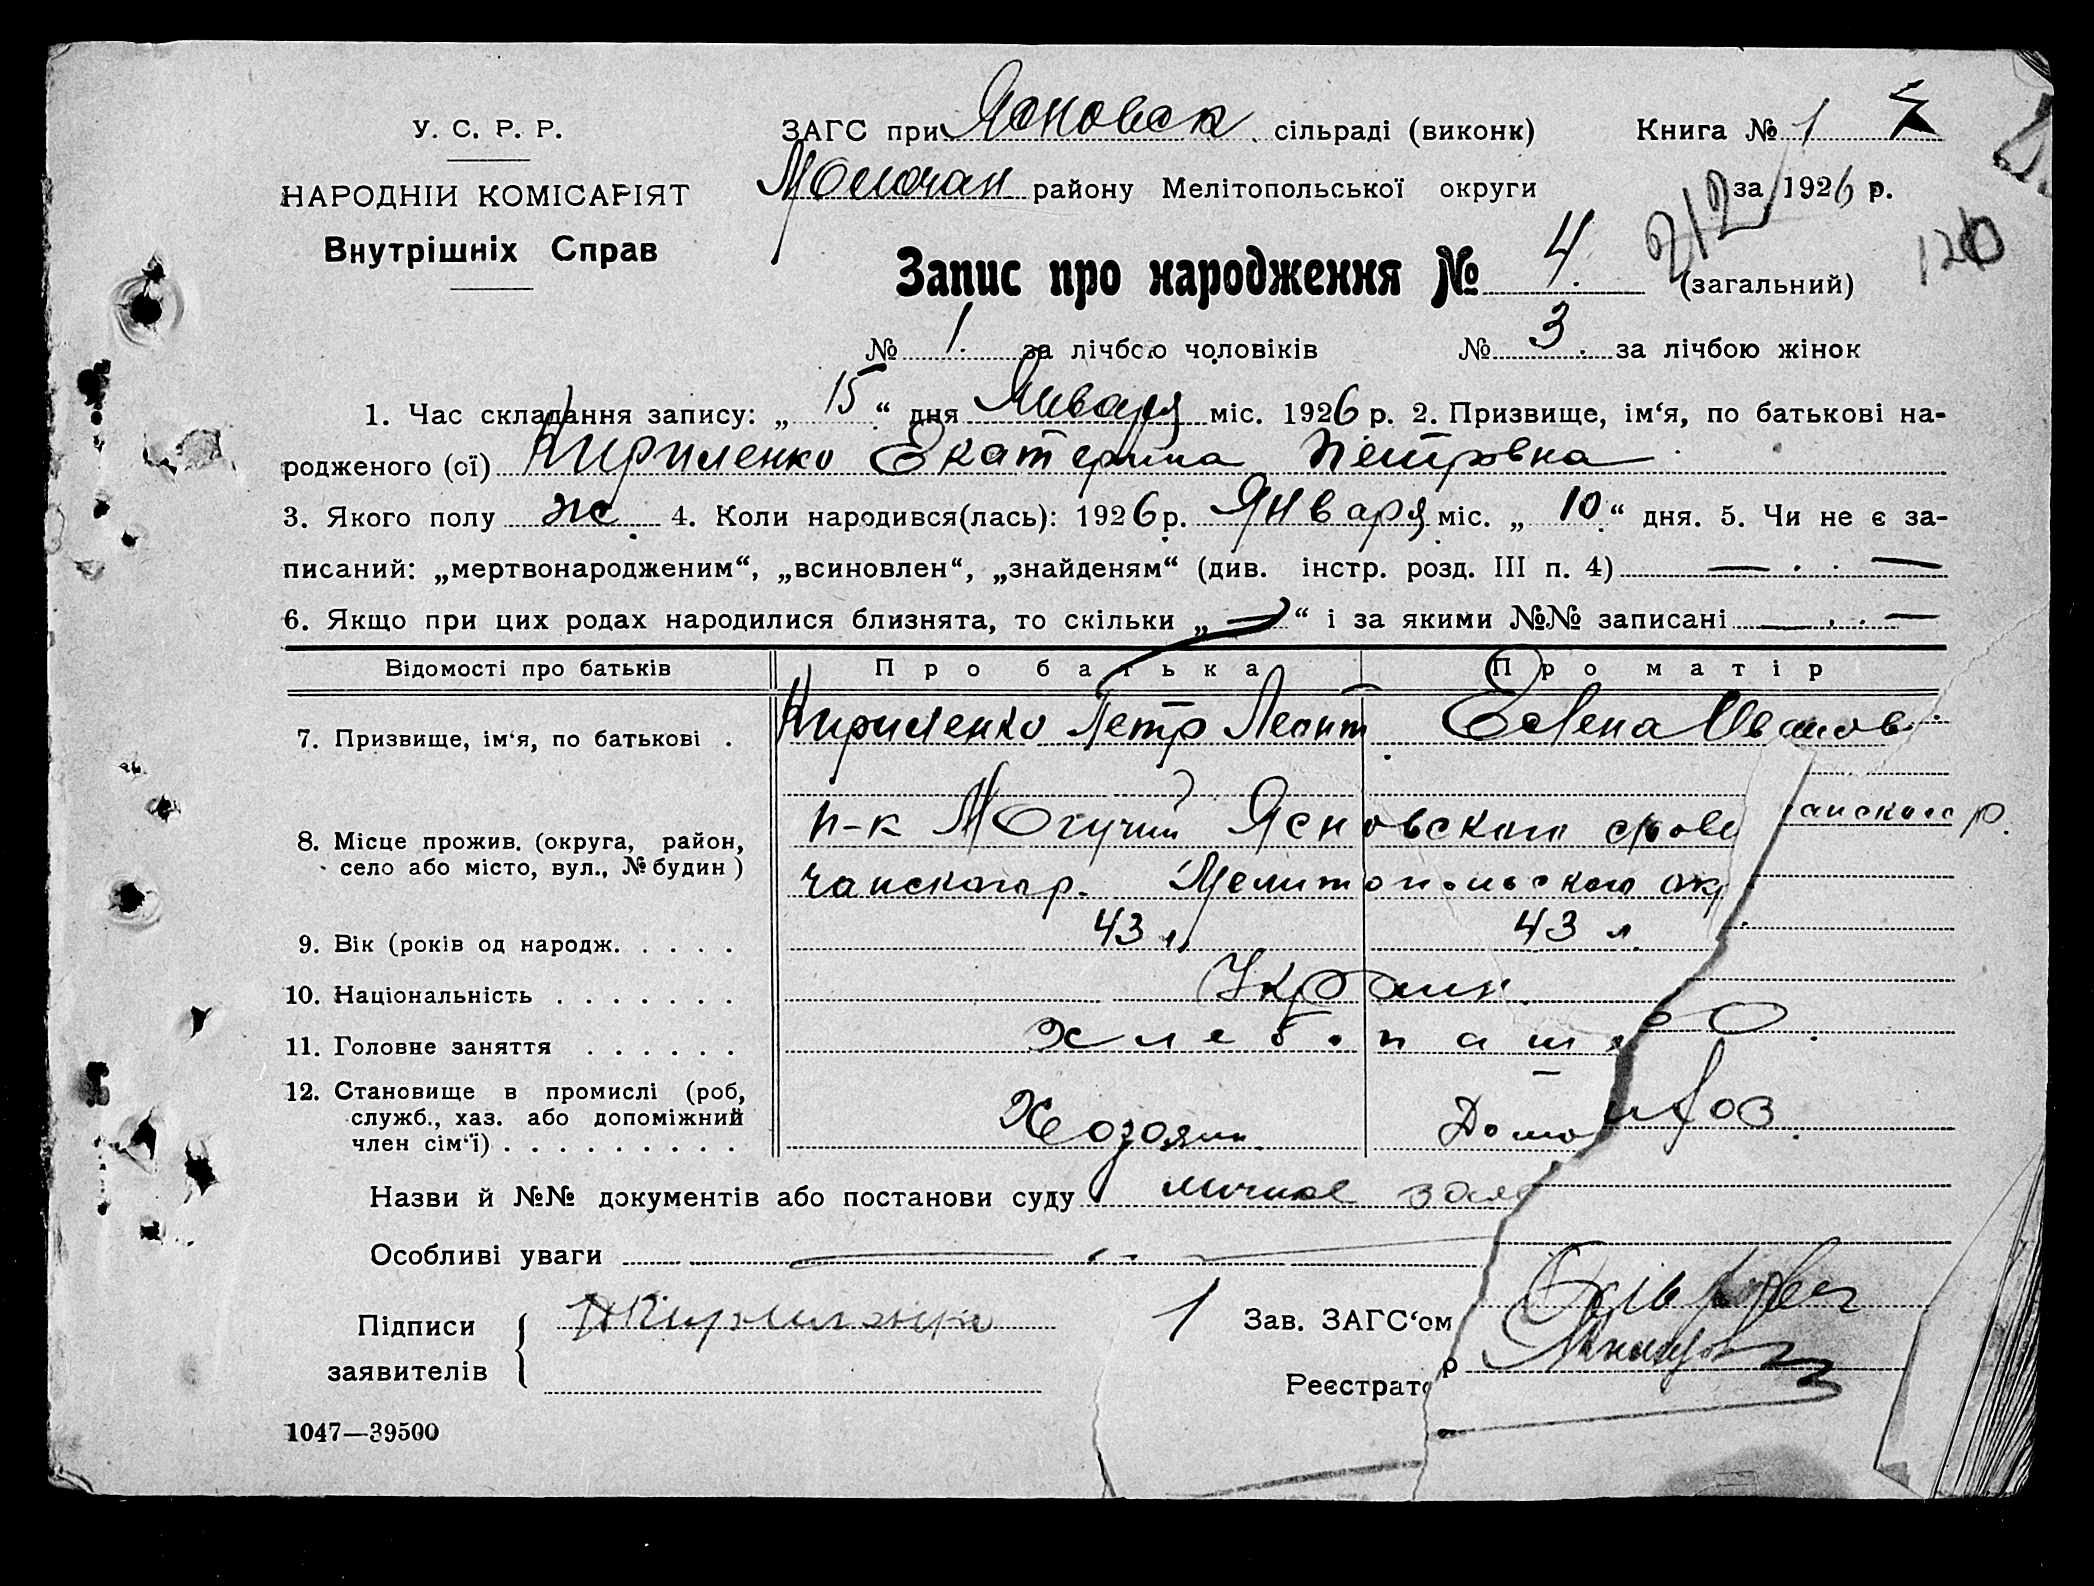 У. С. Р. Р.
НАРОДНІЙ КОМІСАРІЯТ
Внутрішніх Справ
ЗАГС при Ясновск сільраді (виконк) Книга № 1
Молочан району Мелітопольської округи за 1926 р.
212
120
Запис про народження № 4. (загальний)
№ 1. за лічбою чоловіків № 3. за лічбою жінок
1. Час складання запису: „ 15 “ дня Января міс. 1926 р. 2. Призвище, ім‘я, по батькові на-
родженого (ої) Кириленко Екатерина Петровна
3. Якого полу ж. 4. Коли народився(лась): 1926 р. Января міс. „ 10 “ дня. 5. Чи не є за-
писаний: „мертвонародженим“, „всиновлен“, „знайденям“ (див. інстр. розд. III п. 4) —
6. Якщо при цих родах народилися близнята, то скільки „ — “ і за якими №№ записані —
Відомості про батьків Про батька Про матір
7. Призвище, ім‘я, по батькові . Кириленко Петр Леонт Елена Иванов
8. Місце прожив. (округа, район, п-к Могучий Ясновского анского р.
село або місто, вул., № будин ) чанского р. Мелитопольского окр
9. Вік (років од народж. . . . . 43 л. 43 л.
10. Національність . . . . . . . Украин.
11. Головне заняття . . . . . . Хлебопаш
12. Становище в промислі (роб,
служб., хаз. або допоміжний
член сім‘ї) . . . . . . . . . Хозяин Домо
Назви й №№ документів або постанови суду личное заяв
Особливі уваги —
Підписи
заявителів
Кириленко
1 Зав. ЗАГС‘ом
Реєстратор
1047—39500